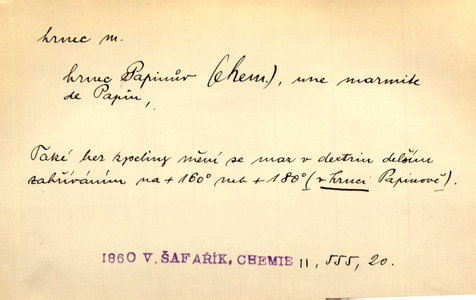 hrnec m.
hrnec Papinův (chem.), une marmite
de Papin,
Také bez kyseliny mění se maz v dextrin delším
zahříváním na +160° neb +180° (v hrnci Papinově).
1860 V. ŠAFAŘÍK, CHEMIE II, 555, 20.